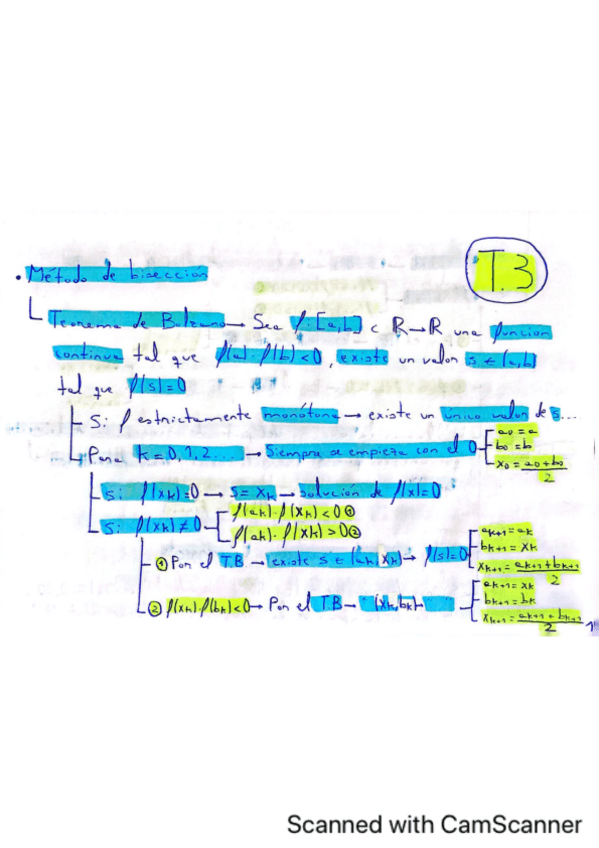 T.3
• Método de bisección
Teorema de Bolzano → Sea f: [a,b] c R → R una función
continua tal que f(a)·f(b)<0, existe un valor s ∈ (a,b)
tal que f(s)=0
Si f estrictamente monótona → existe un único valor de s...
Para k=0,1,2... → Siempre se empieza con el 0
a0=a
b0=b
x0=a0+b0/2
Si f(xk)=0 → s=xk → solución de f(x)=0
Si f(xk)≠0
f(ak)·f(xk)<0 ①
f(ak)·f(xk)>0 ②
① Por el T.B → existe s ∈ (ak,xk) → f(s)=0
ak+1=ak
bk+1=xk
xk+1=ak+1+bk+1/2
② f(xk)·f(bk)<0 → Por el T.B → (xk,bk) →
ak+1=xk
bk+1=bk
xk+1=ak+1+bk+1/2
1
Scanned with CamScanner